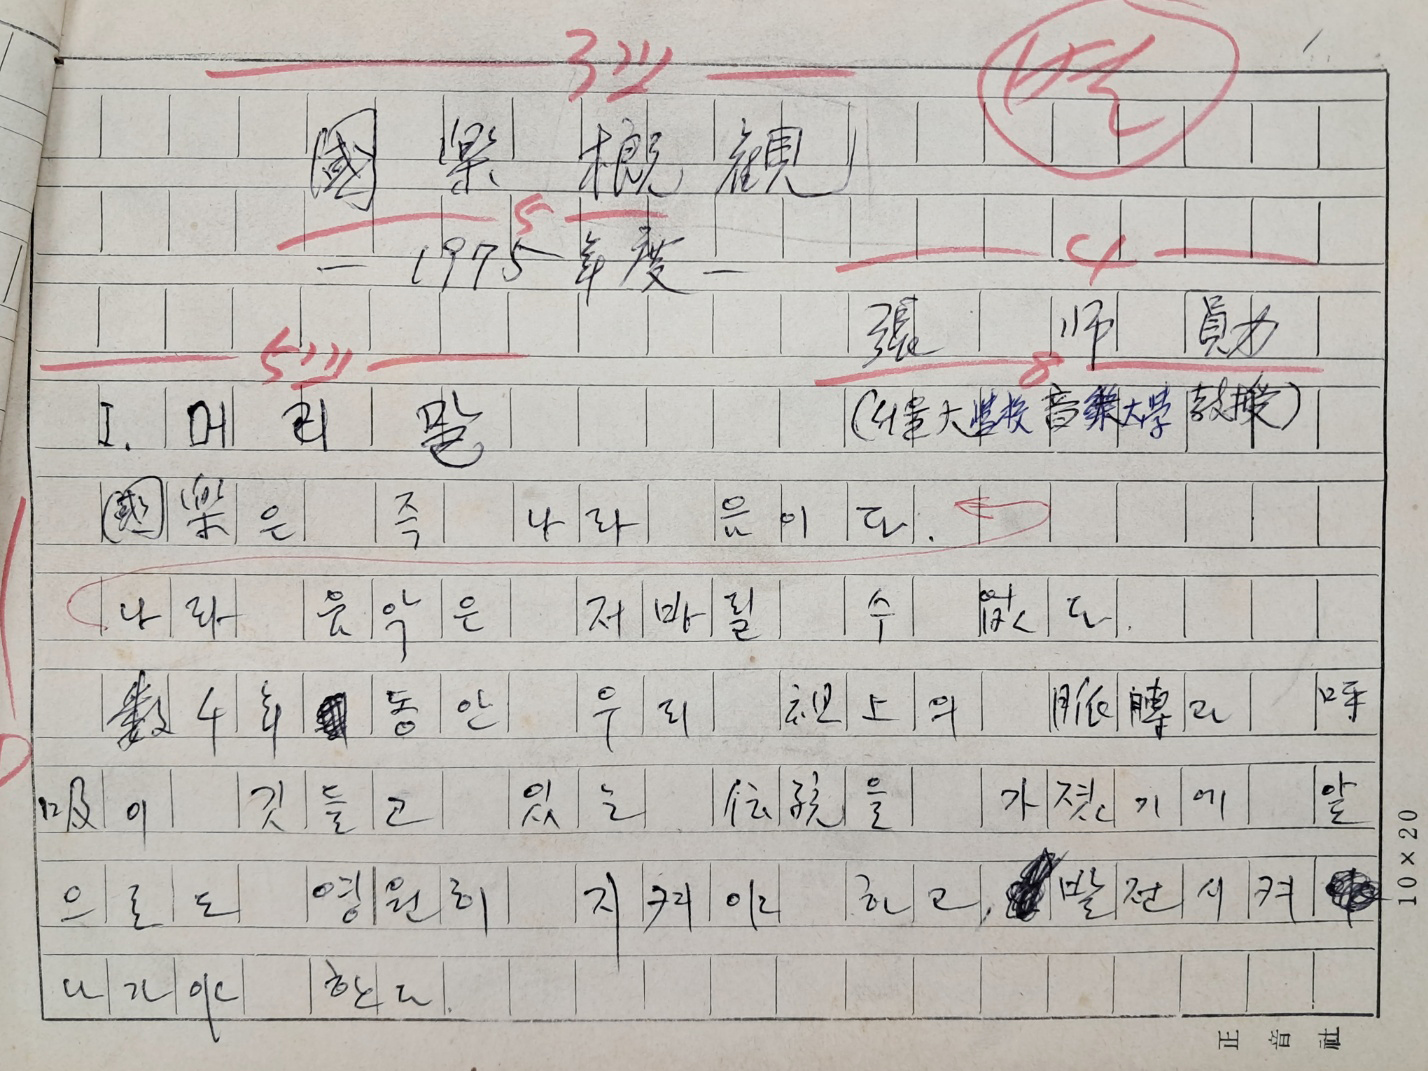 國樂槪観
— 1975年度 —
張師勛
I. 머리말
(서울大学校音楽大学 教授)
國樂은 즉 나라 음이다.
나라 음악은 저바릴 수 없다.
数4年 동안 우리 祖上의 脈膊과 呼
吸이 깃들고 있는 伝統을 가졌기에 앞
으로도 영원히 지켜야 하고, 발전시켜
나가야 한다.
10×20
正音社
3
5
4
5
8